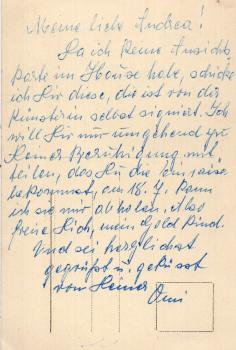 Meine liebe Andrea!
Da ich keine Ansichts
karte im Hause habe, schicke
ich Dir diese, die ist von der
Künstlerin selbst signiert. Ich
will Dir nur umgehend zu
Deiner Beruhigung mit
teilen, das Du die
bekommst, am 18. 7. kann
ich sie mir abholen. Also
freue Dich, mein Goldkind.
Und sei herzlichst
gegrüßt u. geküsst
von Deiner
Omi